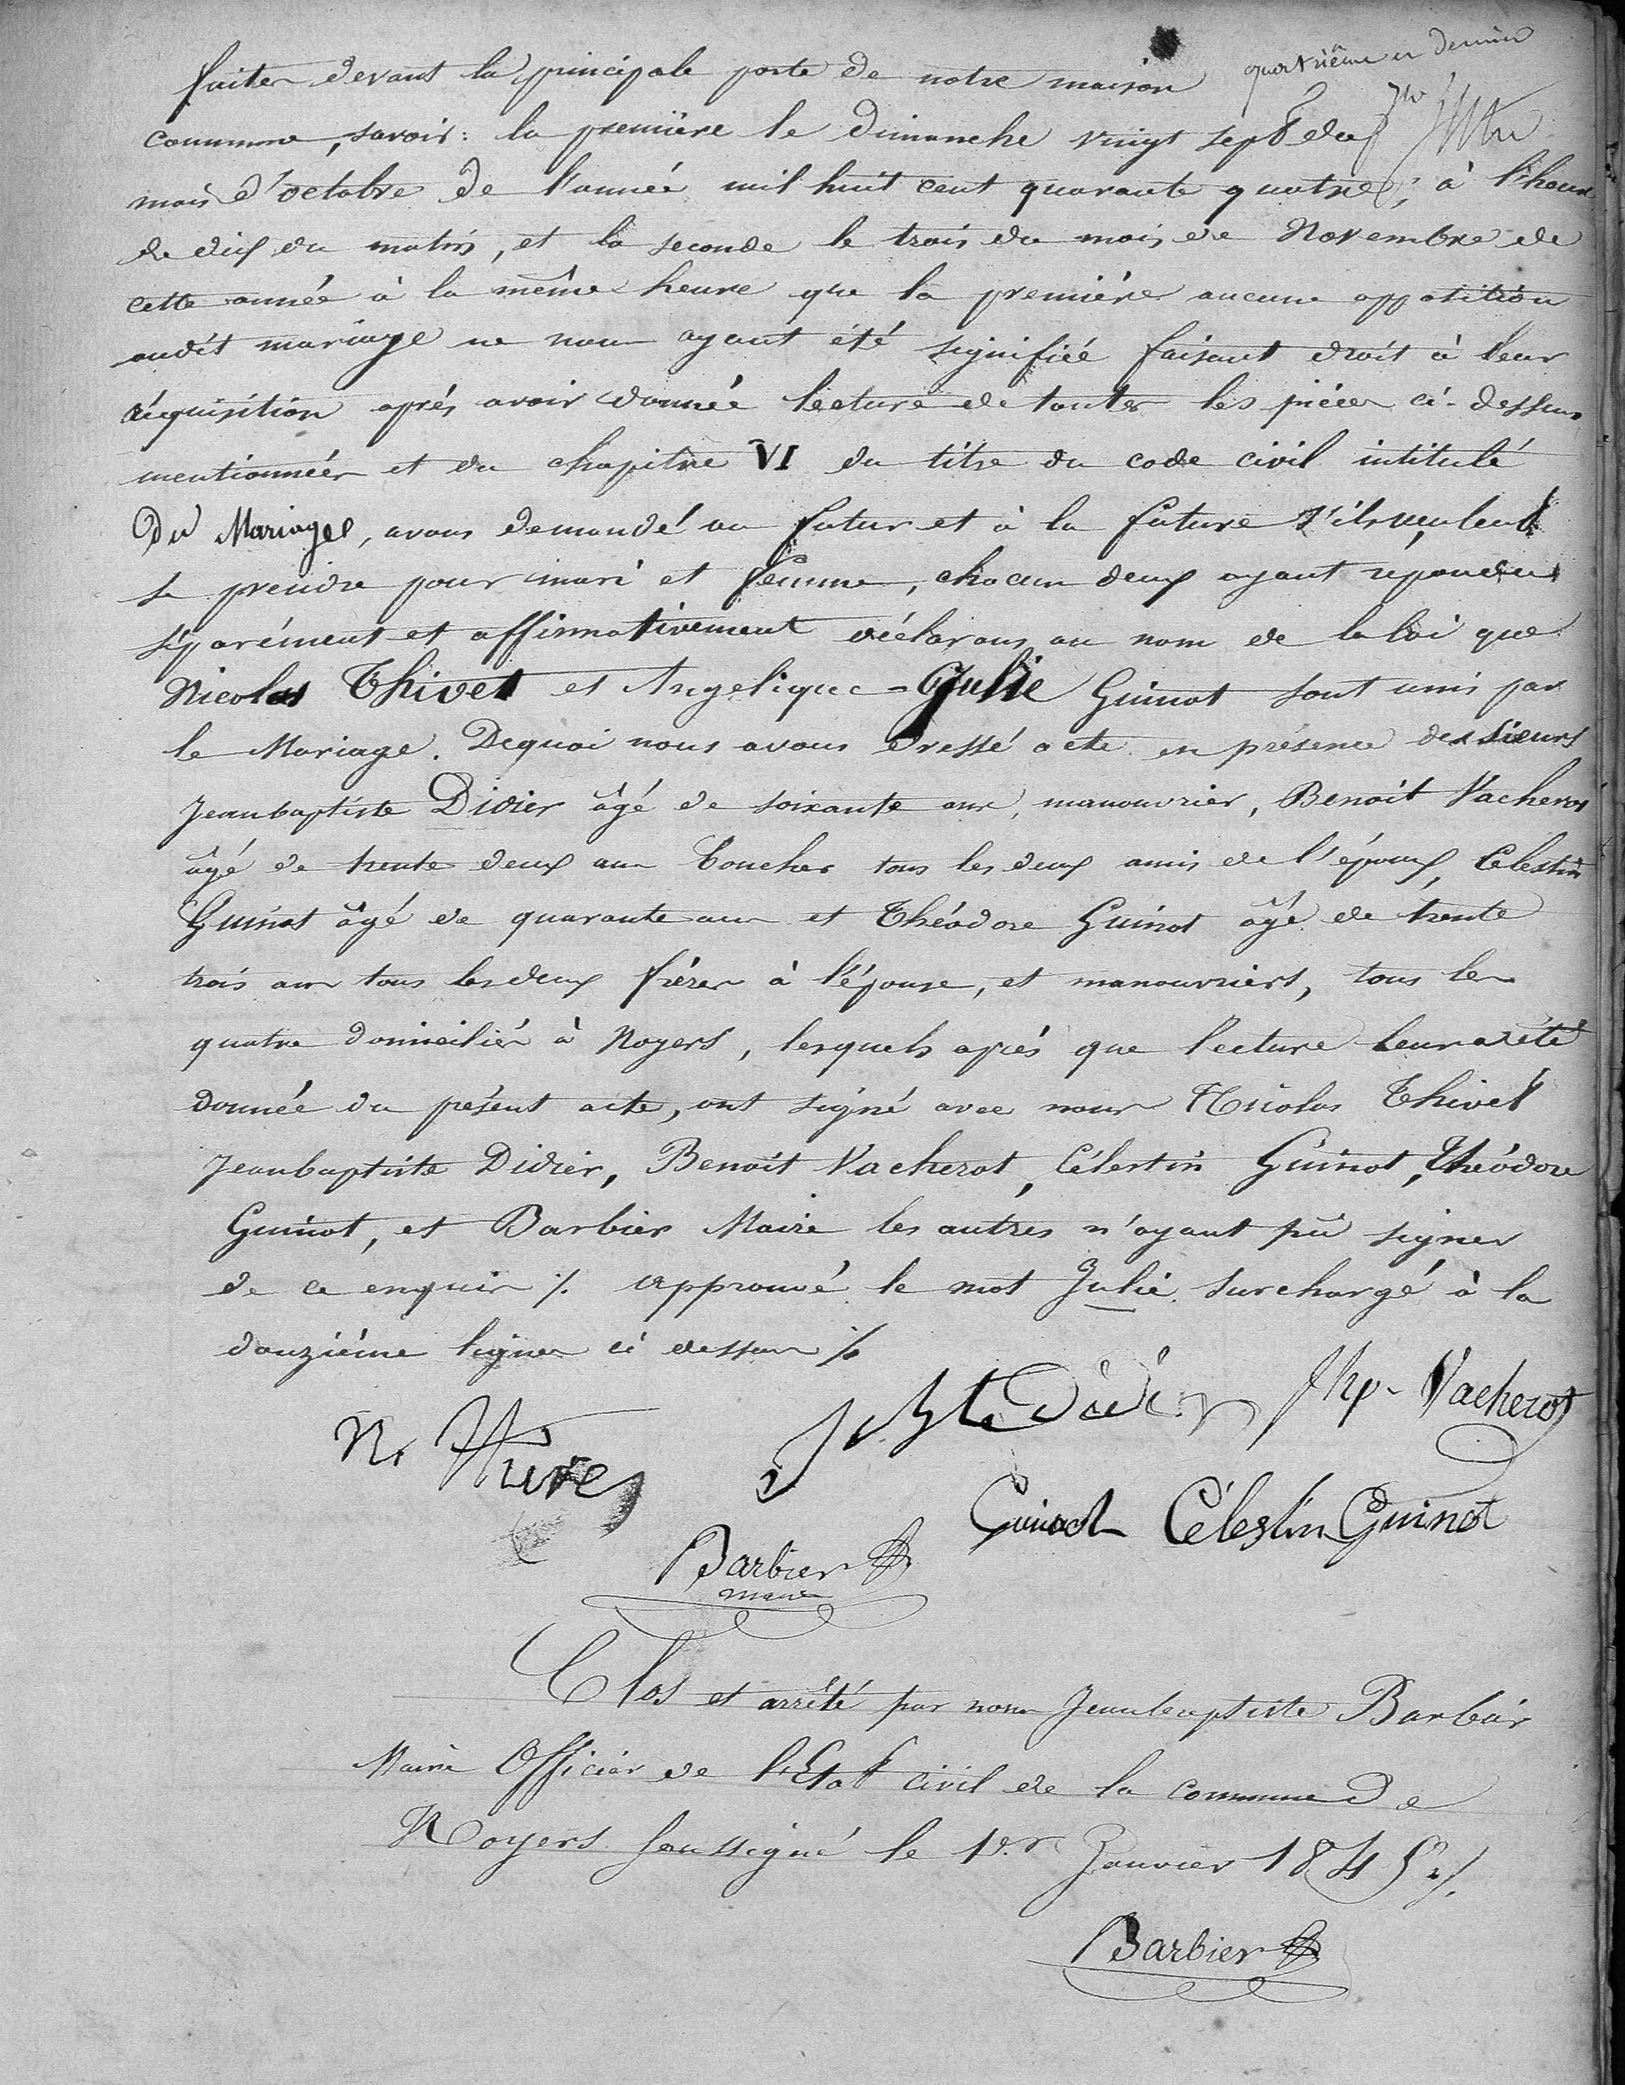 quatrième et dernier
faites devant la principale porte de notre maison
commune, savoir: la première le dimanche vingt sept du
mois d'octobre de l'année mil huit cent quarante quatre, à l'heure
de dix du matin, et la seconde le trois du mois de Novembre de
cette année à la même heure que la première aucune opposition
audit mariage ne nous ayant été signifiée faisant droit à leur
réquisition après avoir donnée lecture de toutes les pièces ci-dessus
mentionnées et du chapitre VI du titre du code civil intitulé
Du Mariage, avons demandé au futur et à la future s'ils veulent
se prendre pour mari et femme, chacun deux ayant répondu
séparément et affirmativement déclarons au nom de la loi que
Nicolas Thivet et Angelique-Julie Guinot sont unis par
le Mariage. Dequoi nous avons dressé acte en présence des sieurs
Jeanbaptiste Didier âgé de soixante ans, manouvrier, Benoit Vacherot
âgé de trente deux ans boucher tous les deux amis de l'époux, Célestin
Guinot âgé de quarante ans et Théodore Guinot âgé de trente
trois ans tous les deux frères à l'épouse, et manouvriers, tous les
quatre domiciliés à Noyers, lesquels après que lecture leur a été
donnée du présent acte, ont signé avec nous Nicolas Thivet
Jeanbaptiste Didier, Benoit Vacherot, Célestin Guinot, Théodore
Guinot, et Barbier Maire les autres n'ayant pu signer
de ce enquis ./. approuvé le mot Julie surchargé à la
douzième ligne ci dessus ./.
N. Thivet J Bte Didier Vacherot
Guinot Célestin Guinot
Barbier
maire
Clos et arrêté par nous Jeanbaptiste Barbier
Maire Officier de l'Etat civil de la commune de
Noyers soussigné le 1er Janvier 1845 ./.
Barbier